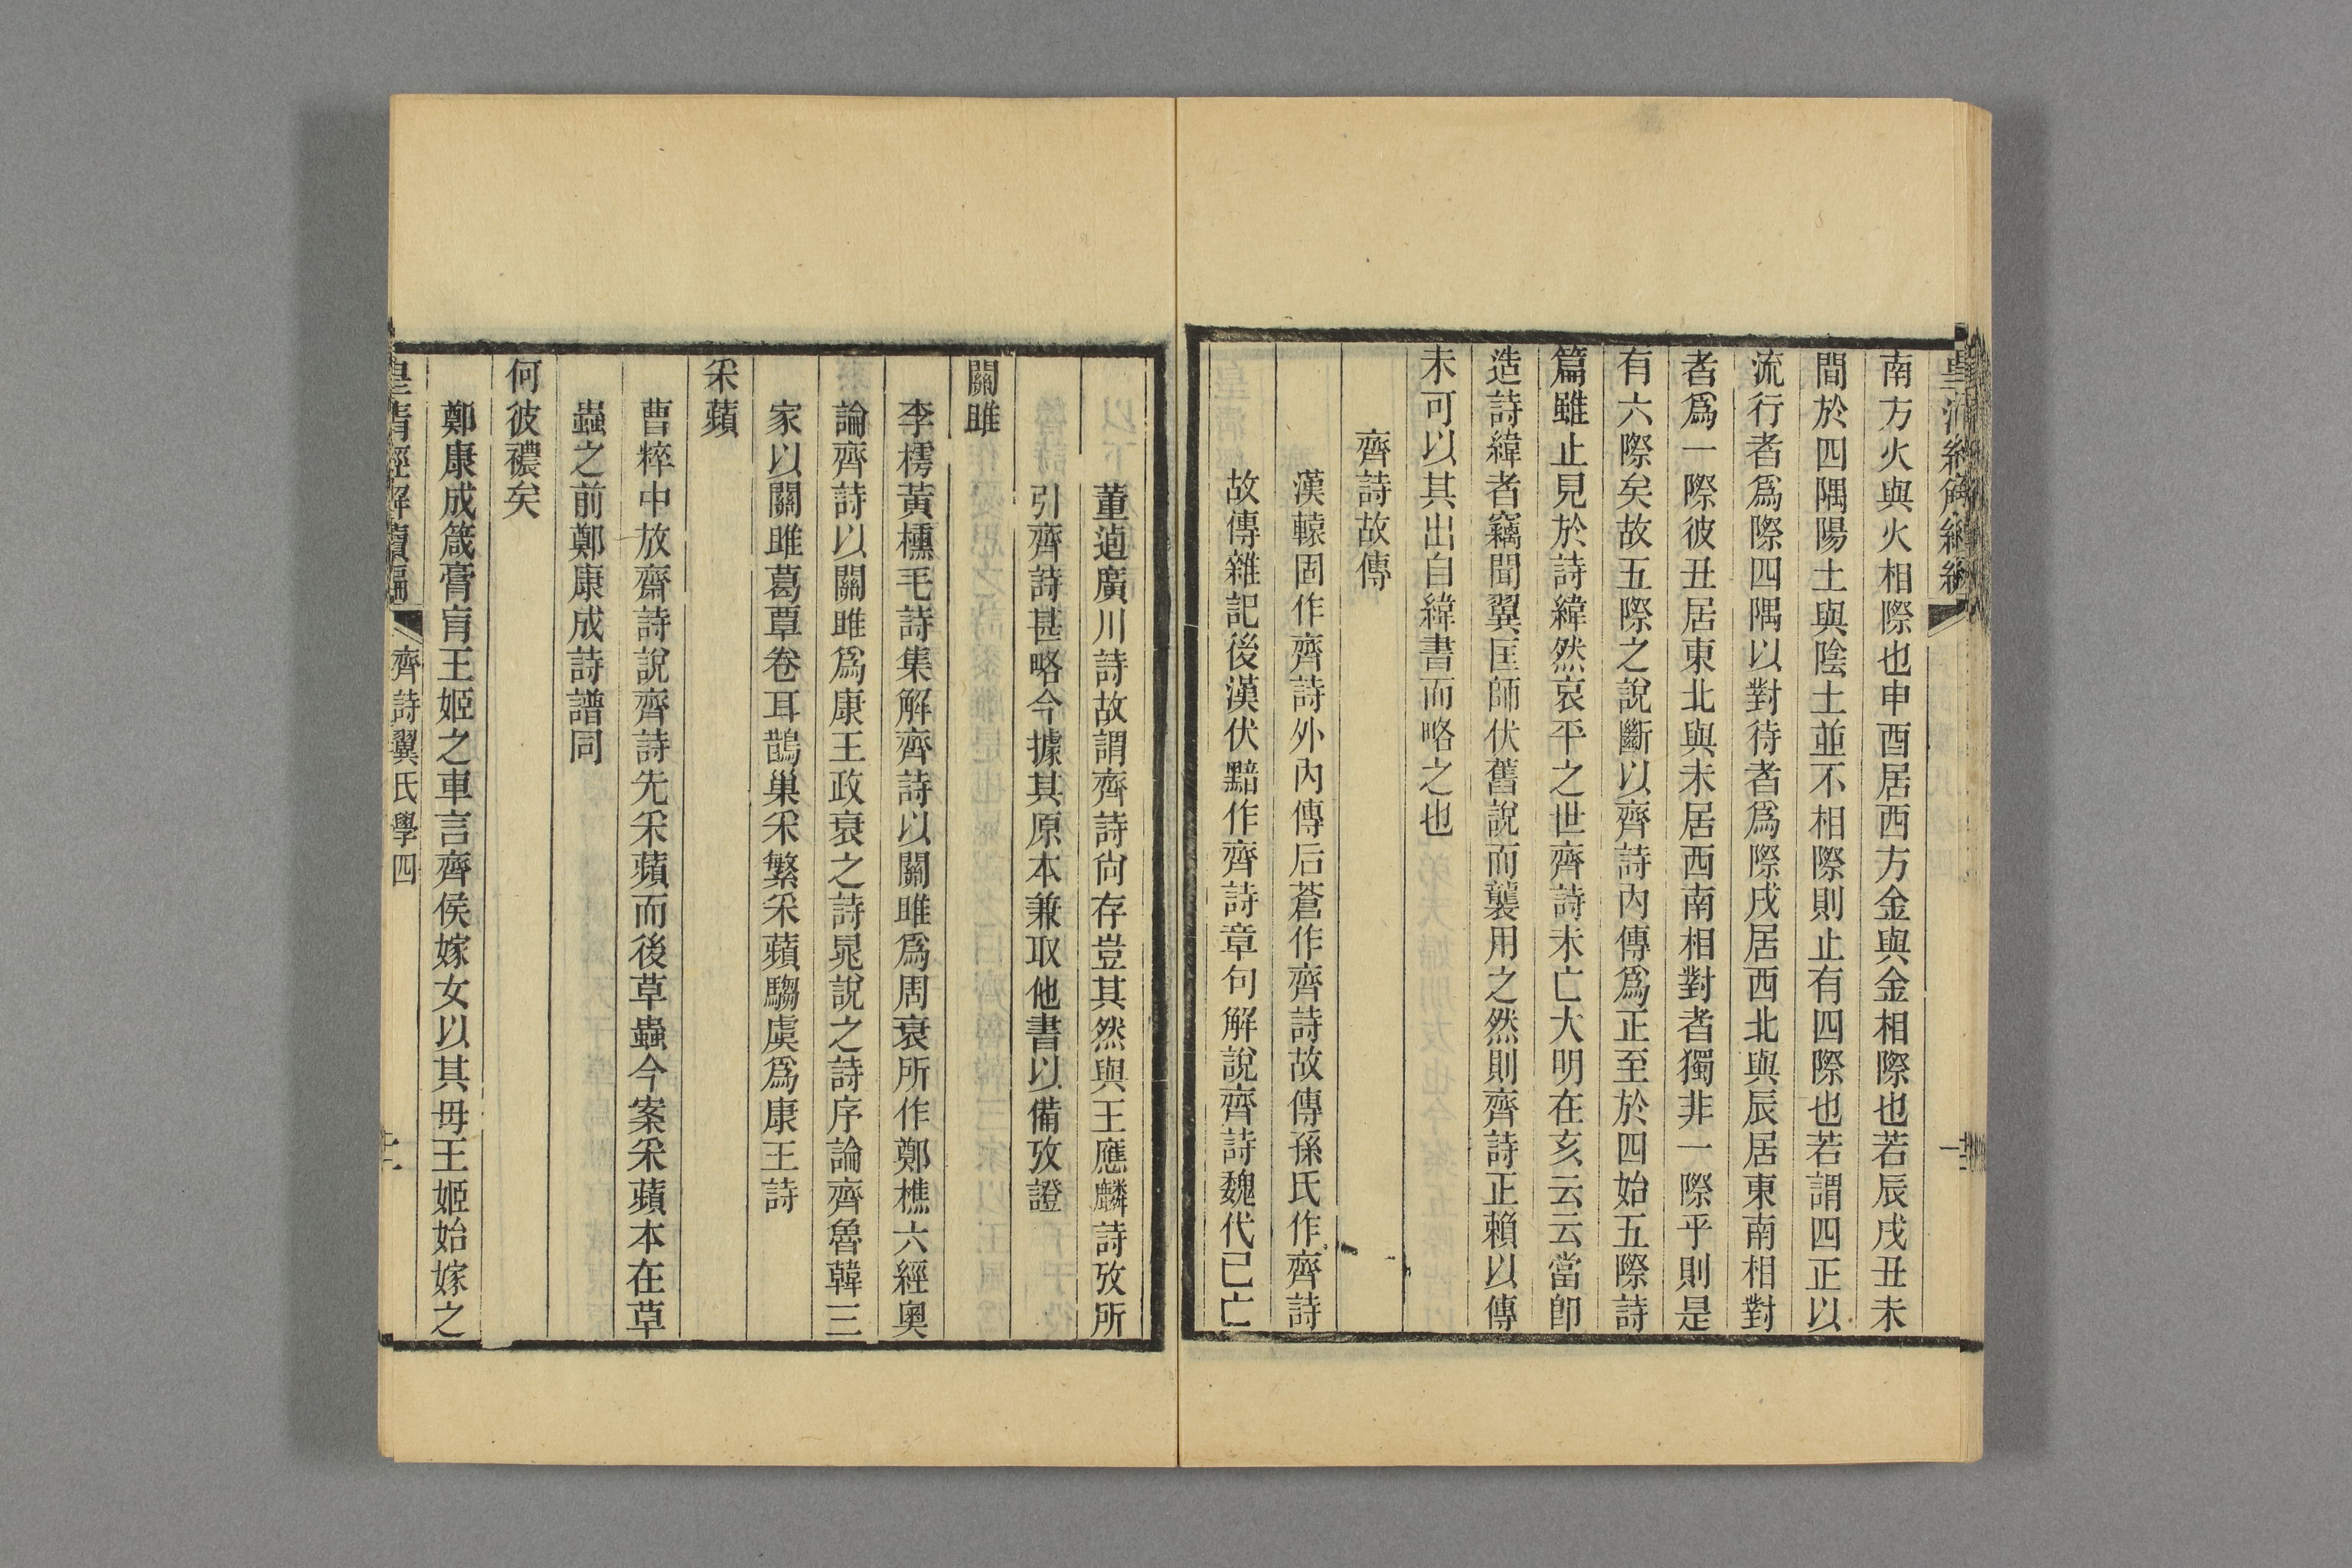 南方火與火相際也申酉居西方金與金相際也若辰戌丑未
間於四隅陽土與陰土並不相際則止有四際也若謂四正以
流行者爲際四隅以對待者爲際戌居西北與辰居東南相對
者爲一際彼丑居東北與未居西南相對者獨非一際乎則是
有六際矣故五際之說斷以齊詩內傳爲正至於四始五際詩
篇雖止見於詩緯然哀平之世齊詩未亡大明在亥云云當卽
造詩緯者竊聞翼匡師伏舊說而襲用之然則齊詩正賴以傳
未可以其出自緯書而略之也
齊詩故傳
漢轅固作齊詩外內傳后蒼作齊詩故傳孫氏作齊詩
故傳雜記後漢伏黯作齊詩章句解說齊詩魏代已亡
董逌廣川詩故謂齊詩尙存豈其然與王應麟詩攷所
引齊詩甚略今據其原本兼取他書以備攷證
關雎
李樗黃櫄毛詩集解齊詩以關雎爲周衰所作鄭樵六經奧
論齊詩以關雎爲康王政衰之詩晁說之詩序論齊魯韓三
家以關雎葛覃卷耳鵲巢采繁采蘋騶虞爲康王詩
采蘋
曹粹中放齋詩說齊詩先采蘋而後草蟲今案采蘋本在草
蟲之前鄭康成詩譜同
何彼襛矣
鄭康成箴膏肓王姬之車言齊侯嫁女以其毋王姬始嫁之
皇清經解續編
齊詩翼氏學四